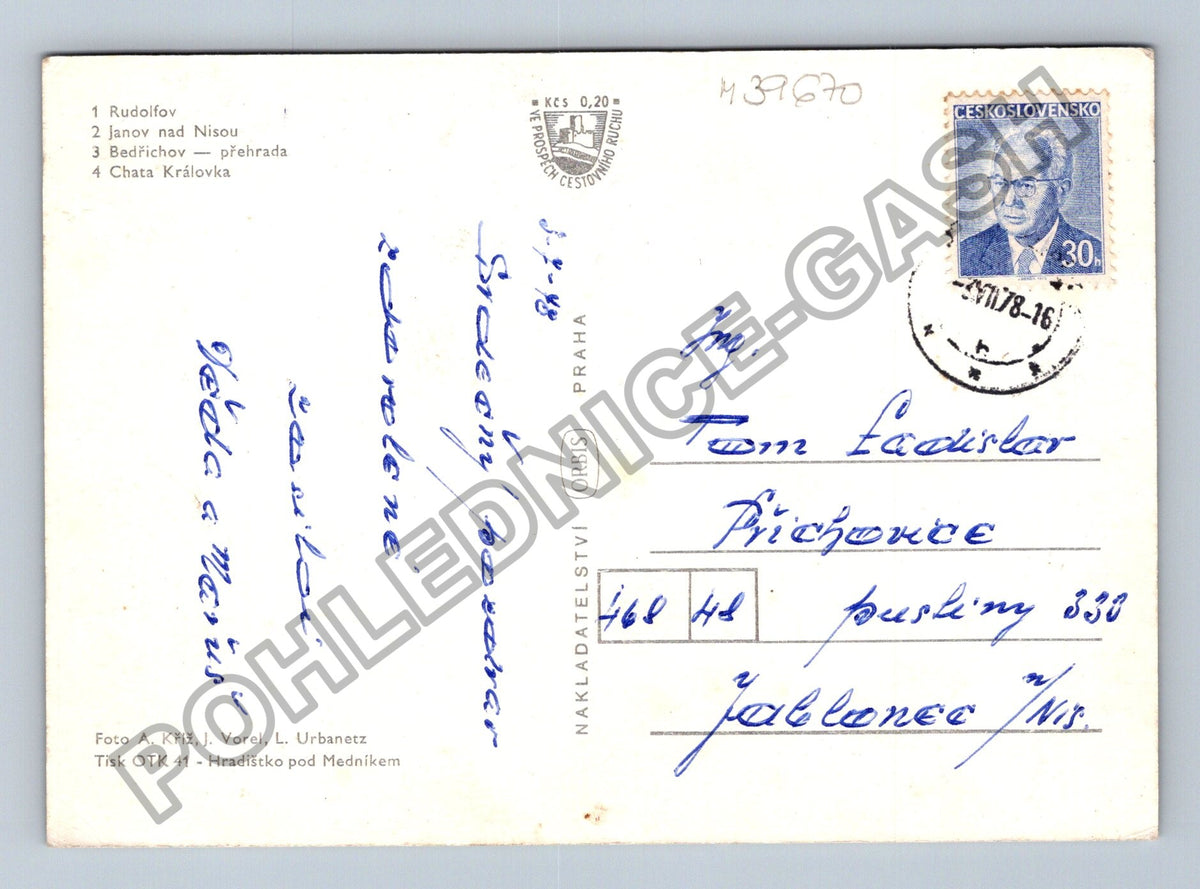 1 Rudolfov
2 Janov nad Nisou
3 Bedřichov — přehrada
4 Chata Královka
Kčs 0,20
VE PROSPĚCH CESTOVNÍHO RUCHU
M 39670
ČESKOSLOVENSKO
30h
VII.78-16
3-7-78
Srdečný pozdrav
z dovolené
zasílají
Věda a Maruš
NAKLADATELSTVÍ ORBIS PRAHA
Ing.
Tom Ladislav
Příchovice
468 48 pustiny 330
Jablonec n/Nis.
Foto A. Kříž, J. Vorel, L. Urbanetz
Tisk OTK 41 - Hradištko pod Medníkem
POHLEDNICE-GASH